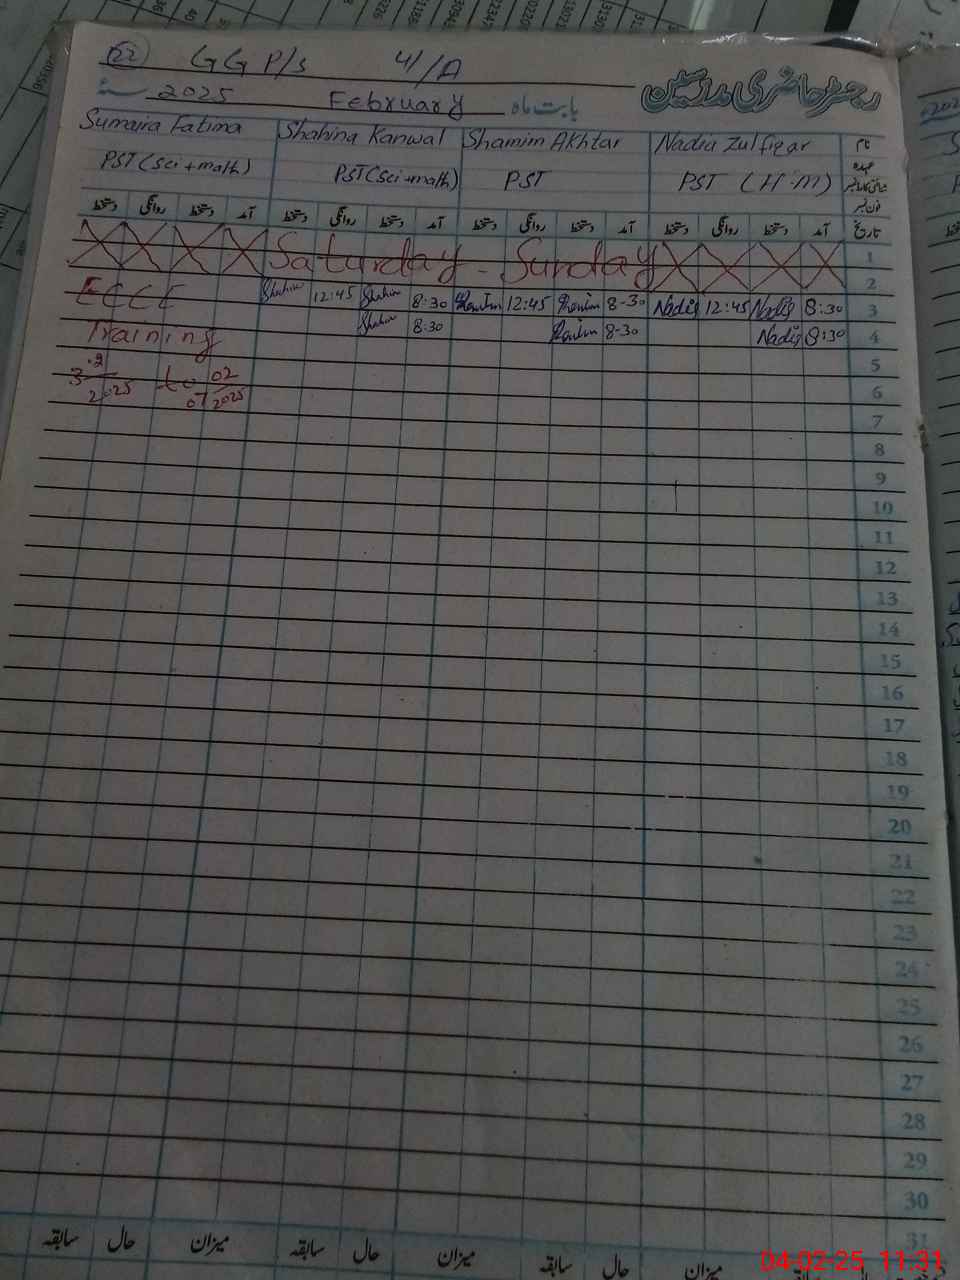 22 GGP/s 4/A
رجسٹر حاضری مدرسین
بابت ماہ February 2025 سنہ
نام Nadia Zulfiqar Shamim Akhtar Shahina Kanwal Sumaira Fatima
عہدہ
PST (H.M) PST PST(Sci+math) PST(Sci+math)
شناختی کارڈ نمبر
فون نمبر
تاریخ آمد دستخط روانگی دستخط آمد دستخط روانگی دستخط آمد دستخط روانگی دستخط آمد دستخط روانگی دستخط
1 Saturday - Sunday
2
3 8:30 Nadia 12:45 Nadia 8-30 12:45 8:30 Shahin 12:45 Shahin ECCE
4 8:30 Nadia 8-30 8:30 Shahin Training
5
6 3.2/2025 to 07 02/2025
7
8
9
10
11
12
13
14
15
16
17
18
19
20
21
22
23
24
25
26
27
28
29
30
31
میزان حال سابقہ میزان حال سابقہ میزان حال سابقہ
04-02-25 11:31